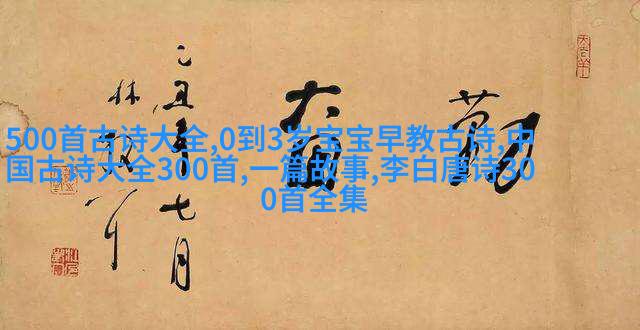 500首古诗大全,0到3岁宝宝早教古诗,中
国古诗大全300首,一篇故事,李白唐诗30
0首全集
勤奋
乙丑年七月
林散耳